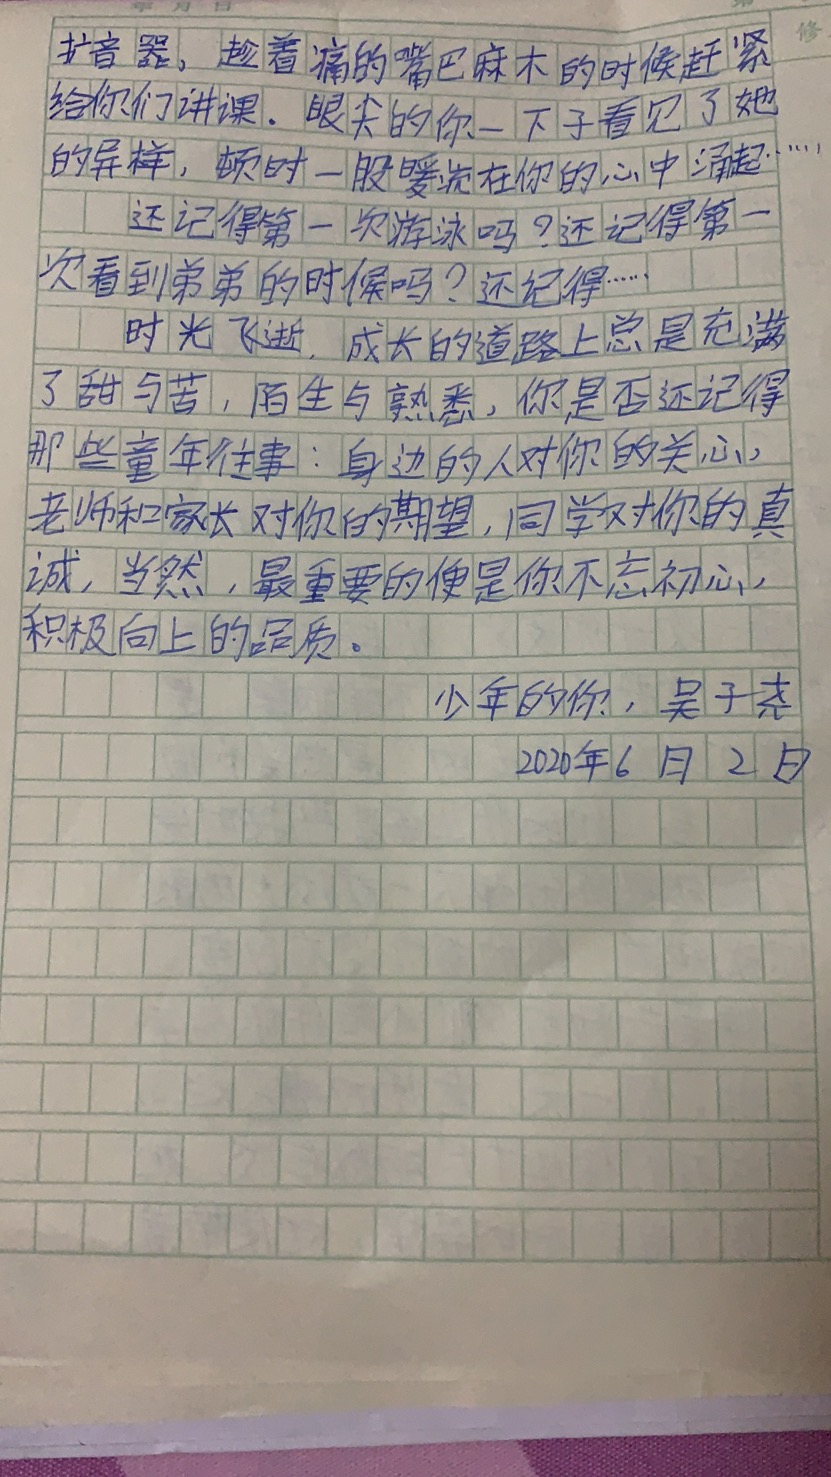 年 月 日 第
修
扩音器，趁着痛的嘴巴麻木的时候赶紧
给你们讲课。眼尖的你一下子看见了她
的异样，顿时一股暖流在你的心中涌起……
还记得第一次游泳吗？还记得第一
次看到弟弟的时候吗？还记得……
时光飞逝，成长的道路上总是充满
了甜与苦，陌生与熟悉，你是否还记得
那些童年往事：身边的人对你的关心，
老师和家长对你的期望，同学对你的真
诚，当然，最重要的便是你不忘初心，
积极向上的品质。
少年的你，吴子尧
2020年6月2日